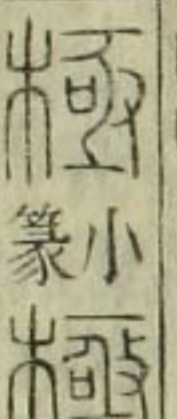 極
小篆
極